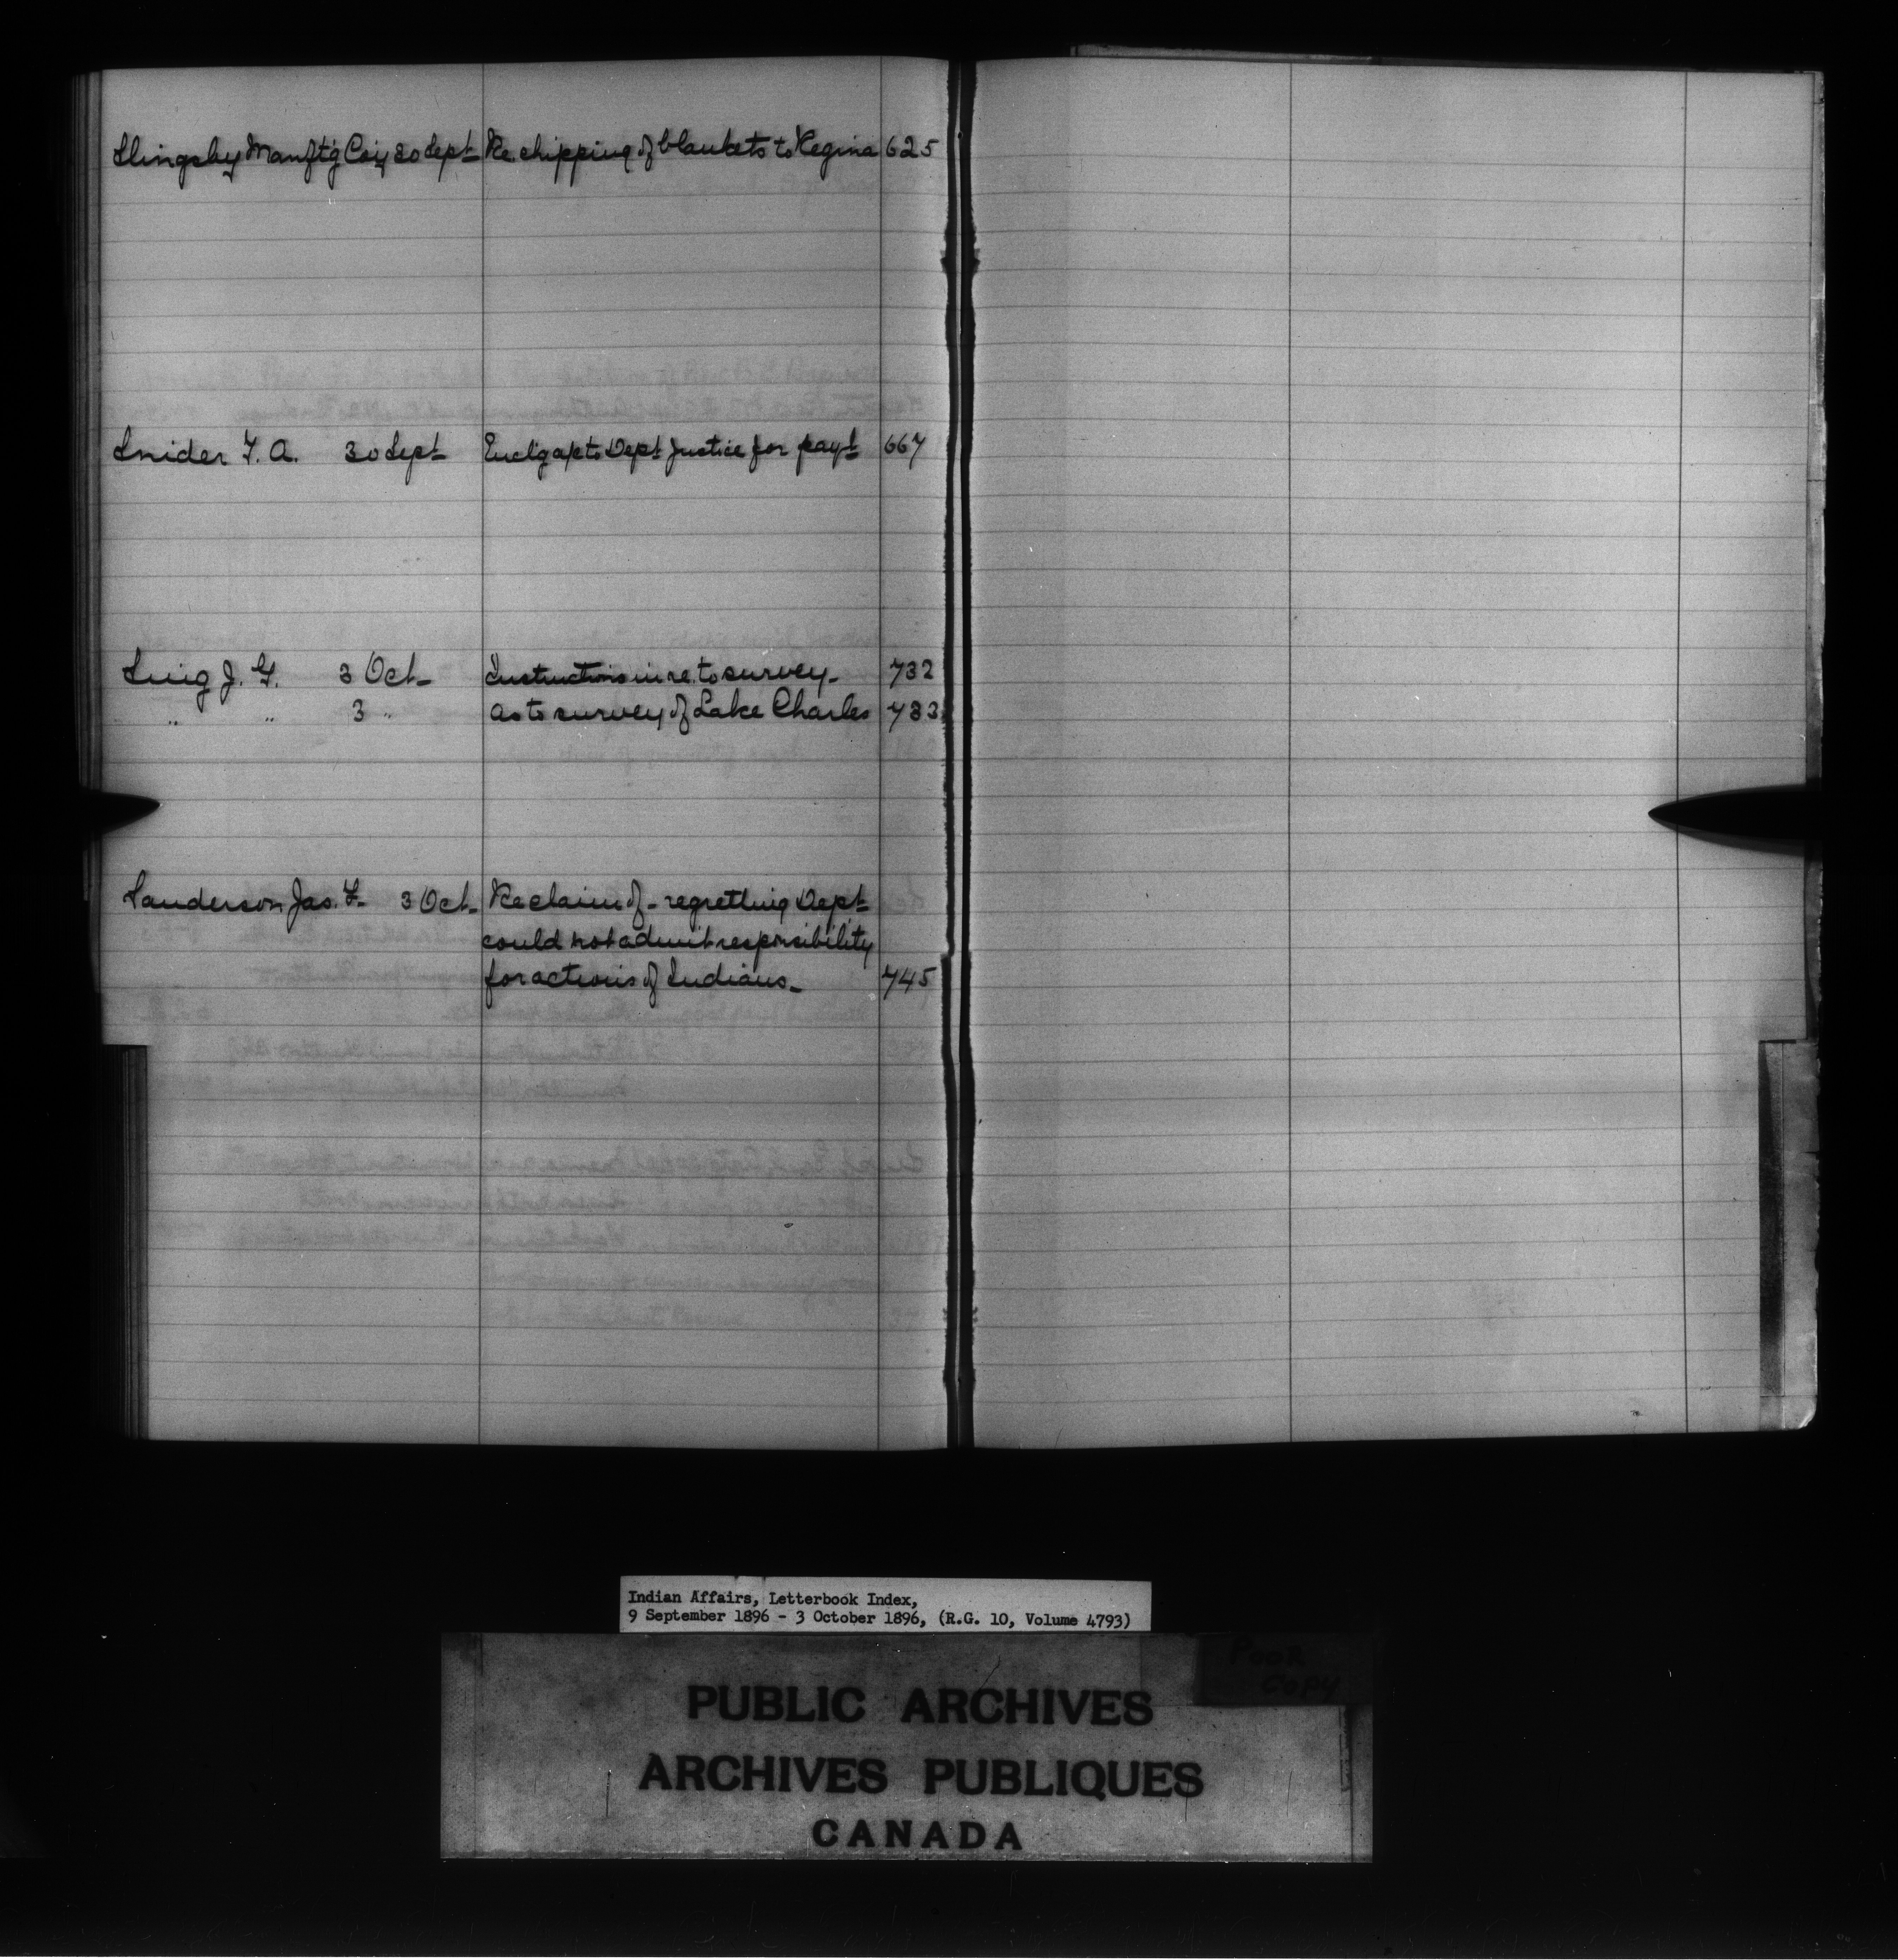 Slingsby Manftg Coy 30 Sept Re shipping of blankets to Regina 625
Snider F. A. 30 Sept Enclg a/c to Dept Justice for payt 667
Sing J. G. 3 Oct Instructions in re. to survey 732
" " 3 " As to survey of Lake Charles 733
Sanderson Jas. F. 3 Oct Re claim of - regretting Dept
could not admit responsibility
for actions of Indians 745
Indian Affairs, Letterbook Index,
9 September 1896 - 3 October 1896, (R.G. 10, Volume 4793)
POOR
COPY
PUBLIC ARCHIVES
ARCHIVES PUBLIQUES
CANADA